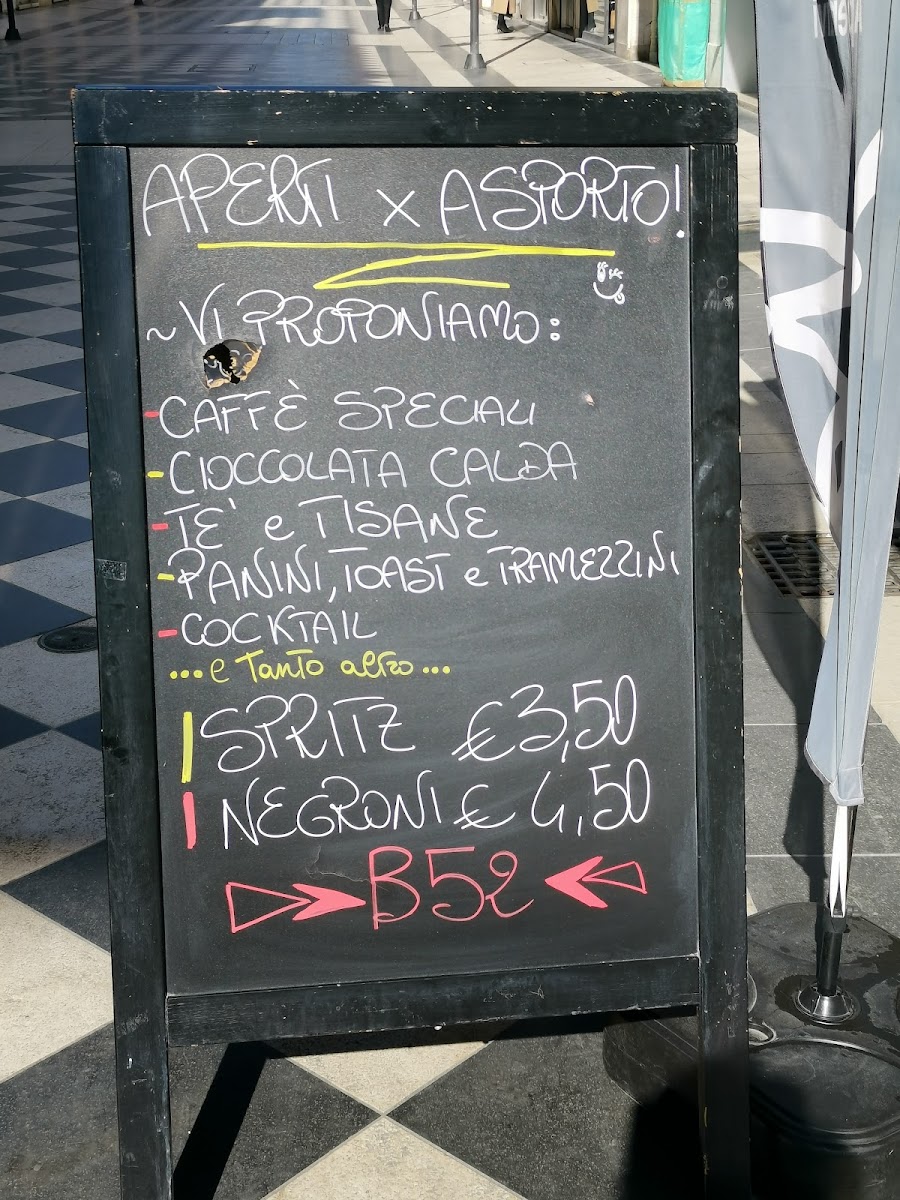 APERTI x ASPORTO!
~VI PROPONIAMO:
-CAFFÈ SPECIALI
-CIOCCOLATA CALDA
-TE' e TISANE
-PANINI, TOAST e TRAMEZZINI
-COCKTAIL
...e tanto altro...
SPRITZ €3,50
NEGRONI € 4,50
B52